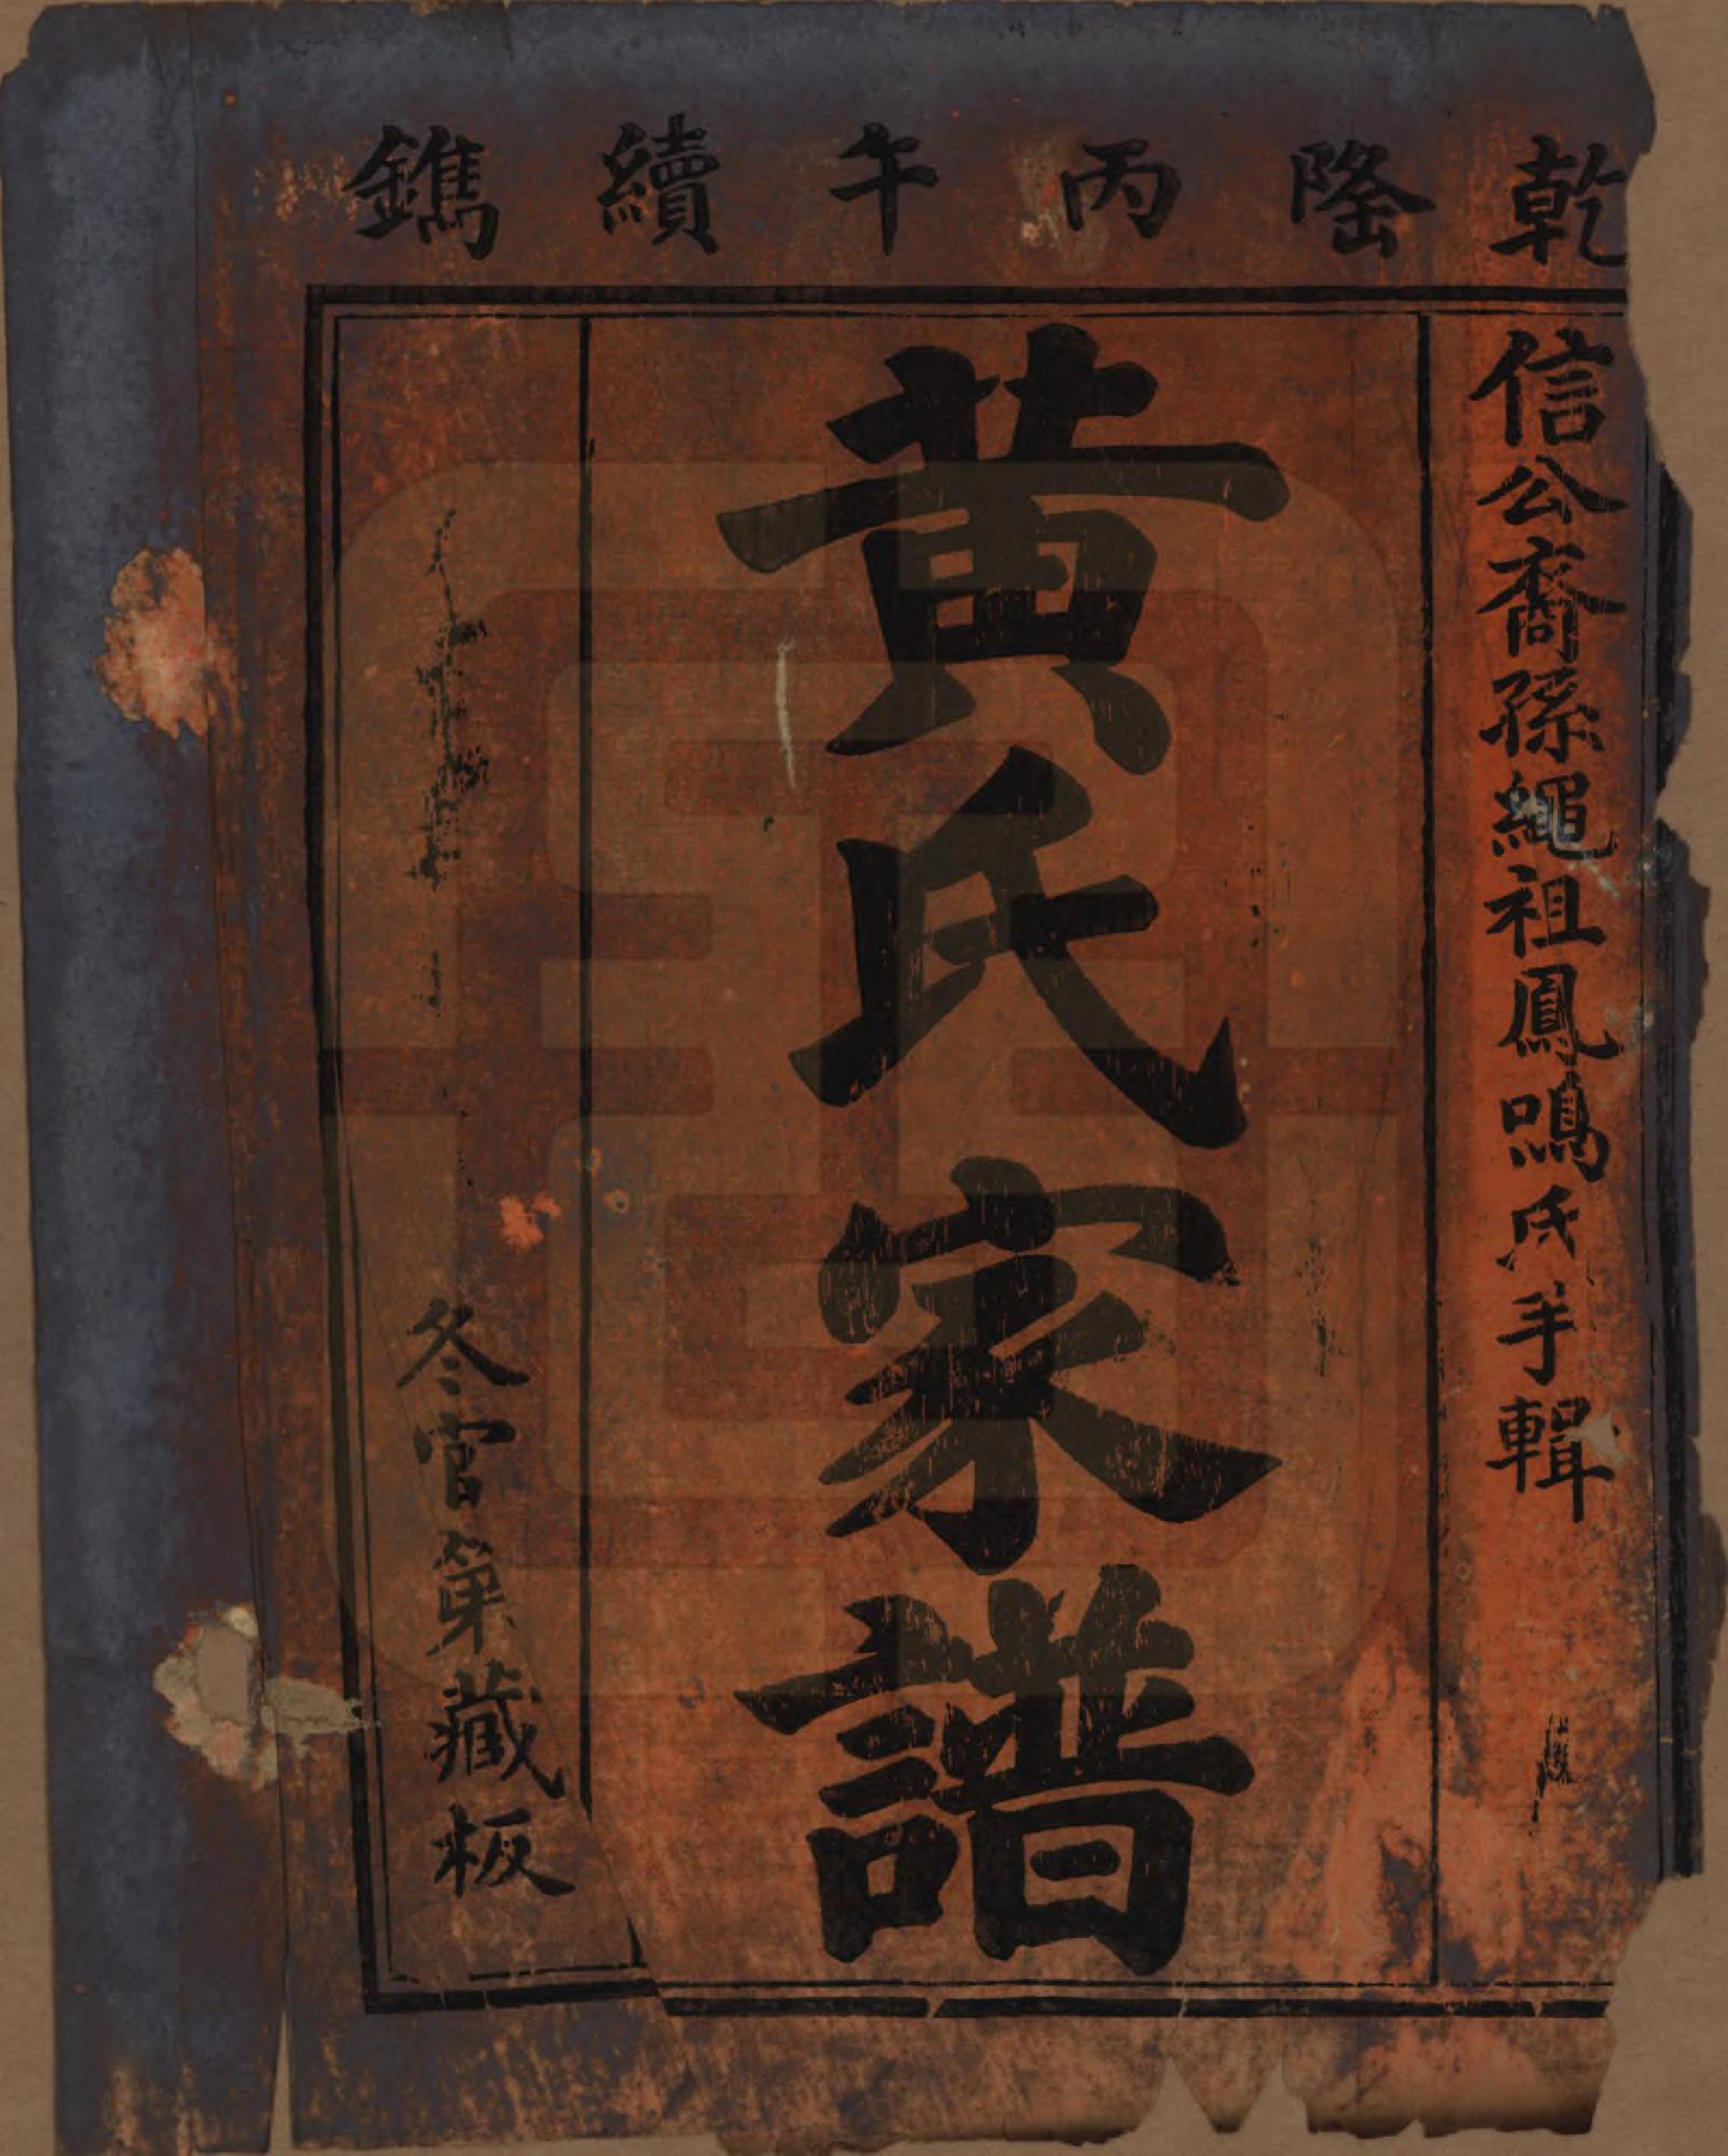 乾隆丙午續鐫
信公裔孫繩祖鳳鳴氏手輯
黃氏家譜
冬官第藏板